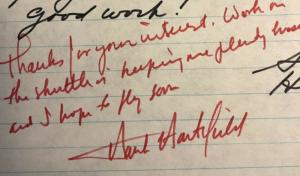 Good work!
Thanks for your interest. Work on
the shuttle is keeping me plenty busy
and I hope to fly soon